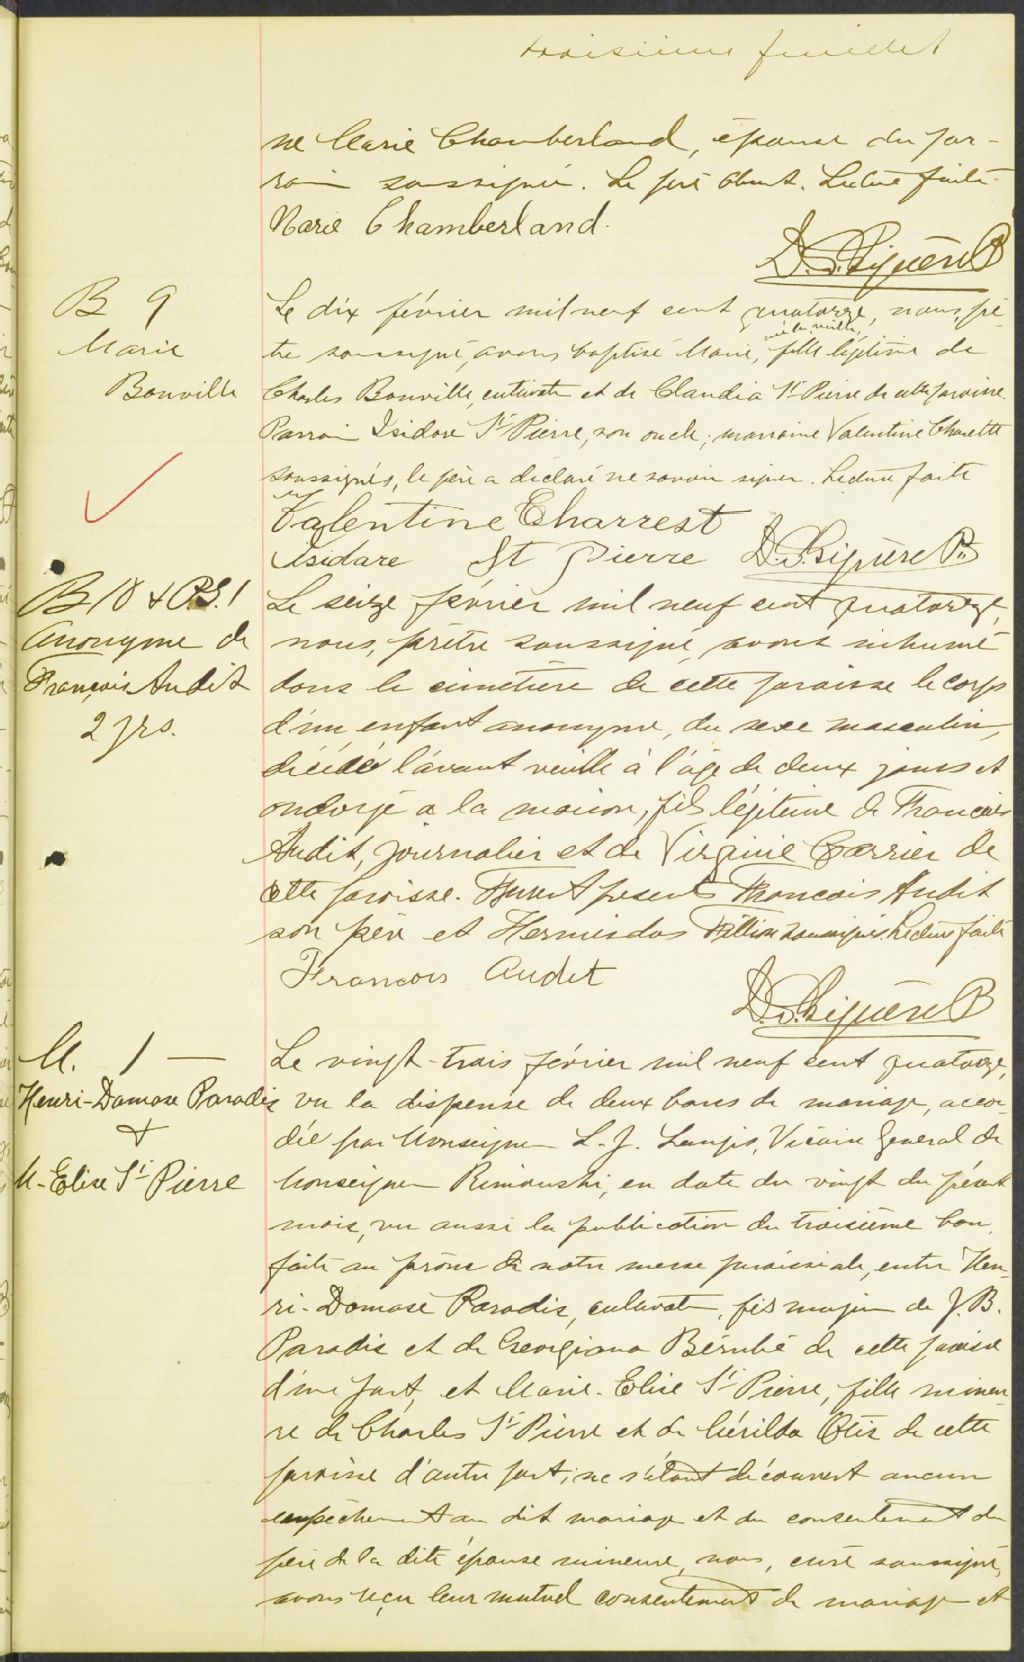 troisième feuillet
ne Marie Chamberland, épouse du par-
rain soussignée. Le père absent. Lecture faite.
Marie Chamberland.
B 9
Marie
Bouville
Le dix février mil neuf cent quatorze, nous, prê-
née la veille,
tre soussigné, avons baptisé Marie, fille légitime de
Charles Bouville, cultivateur et de Claudia St Pierre de cette paroisse.
Parrain Isidore St Pierre, son oncle; marraine Valentine Charette
soussignés, le père a déclaré ne savoir signer. Lecture faite
Valentine Charrest
Isidare St Pierre
B 10 & S. 1
Anonyme de
François Audit
2 jrs.
Le seize février mil neuf cent quatorze,
nous, prêtre soussigné, avons inhumé
dans le cimetière de cette paroisse le corps
d'un enfant anonyme, du sexe masculin,
décédé l'avant veille à l'âge de deux jours et
ondoyé a la maison, fils légitime de François
Audit, journalier et de Virginie Carrier de
cette paroisse. Furent présents François Audit
son père et Hermisdas Fillion soussignés. Lecture faite
Francois Audet
M. 1 —
Henri-Damase Paradis
&
M-Elise St Pierre
Le vingt-trois février mil neuf cent quatorze,
vu la dispense de deux bans de mariage, accor-
dée par Monseigneur L.-J. Langis, Vicaire Général de
Monseigneur Rimouski, en date du vingt du présent
mois, vu aussi la publication du troisième ban
faite au prône de notre messe paroissiale, entre Hen-
ri-Damase Paradis, cultivateur, fils majeur de J. B.
Paradis et de Georgiana Bérubé de cette paroisse
d'une part, et Marie-Elise St Pierre, fille mineu-
re de Charles St Pierre et de Mérilda Otis de cette
paroisse d'autre part; ne s'étant découvert aucun
empêchement au dit mariage et du consentement du
père de la dite épouse mineure, nous, curé soussigné,
avons reçu leur mutuel consentement de mariage et